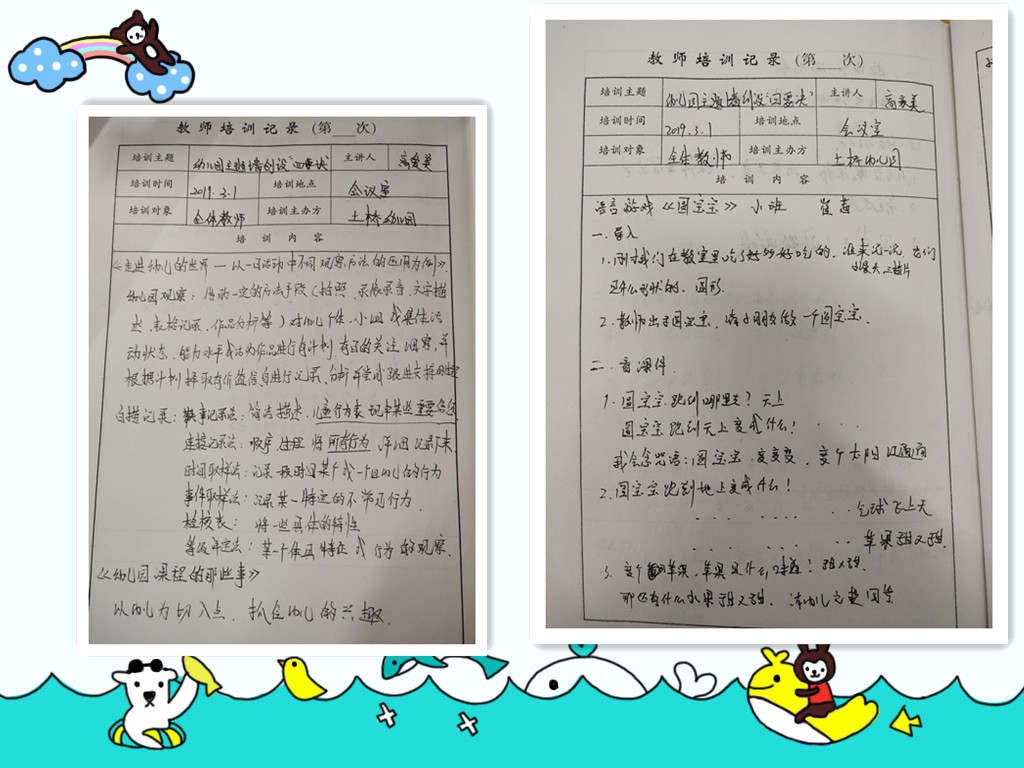 教师培训记录（第___次）
培训主题 幼儿园主题墙创设"四要诀" 主讲人 高爱美
培训时间 2019.3.1 培训地点 会议室
培训对象 全体教师 培训主办方 土桥幼儿园
培 训 内 容
《走进幼儿的世界——以一日活动中不同观察方法的运用为例》.
幼儿园观察：借助一定的方法手段（拍照、录像录音、文字描
述、表格记录、作品分析等）对幼儿个体、小组或集体活
动状态、能力水平或活动作品进行有计划、有目的关注、观察，并
根据计划择取有价值信息进行记录、分析并尝试跟进支持的
白描记录：轶事记录法：简洁描述，儿童行为表现中某些重要信息
连续记录法：顺序，连续 将所有行为 详细记录下来
时间取样法：记录一段时间某个或一个组幼儿的行为
事件取样法：记录某一特定的不常见行为.
检核表：将一些具体的特性
等级评定法：某一个体具特征或行为的观察.
《幼儿园课程的那些事》
以幼儿为切入点，抓住幼儿的兴趣.
教师培训记录（第___次）
培训主题 幼儿园主题墙创设"四要诀" 主讲人 高爱美
培训时间 2019.3.1 培训地点 会议室
培训对象 全体教师 培训主办方 土桥幼儿园
培 训 内 容
语言游戏《圆宝宝》 小班 崔茜
一、导入
1. 刚才我们在教室里吃了好多好吃的，谁来说一说，它们
是什么形状的、圆形.
2. 教师出示圆宝宝，请小朋友做一个圆宝宝.
二、看课件.
1. 圆宝宝跑到哪里去？天上
圆宝宝跑到天上变成什么！ · · · ·
我会念咒语：圆宝宝，变变变，变个太阳红通通
2. 圆宝宝跑到地上变成什么！
. . . . . . . . . . 气球飞上天
. . . . . . . . . . 苹果甜又甜.
3. 变个苹果，苹果是什么味道！甜又甜.
那还有什么水果甜又甜. 请幼儿完整回答